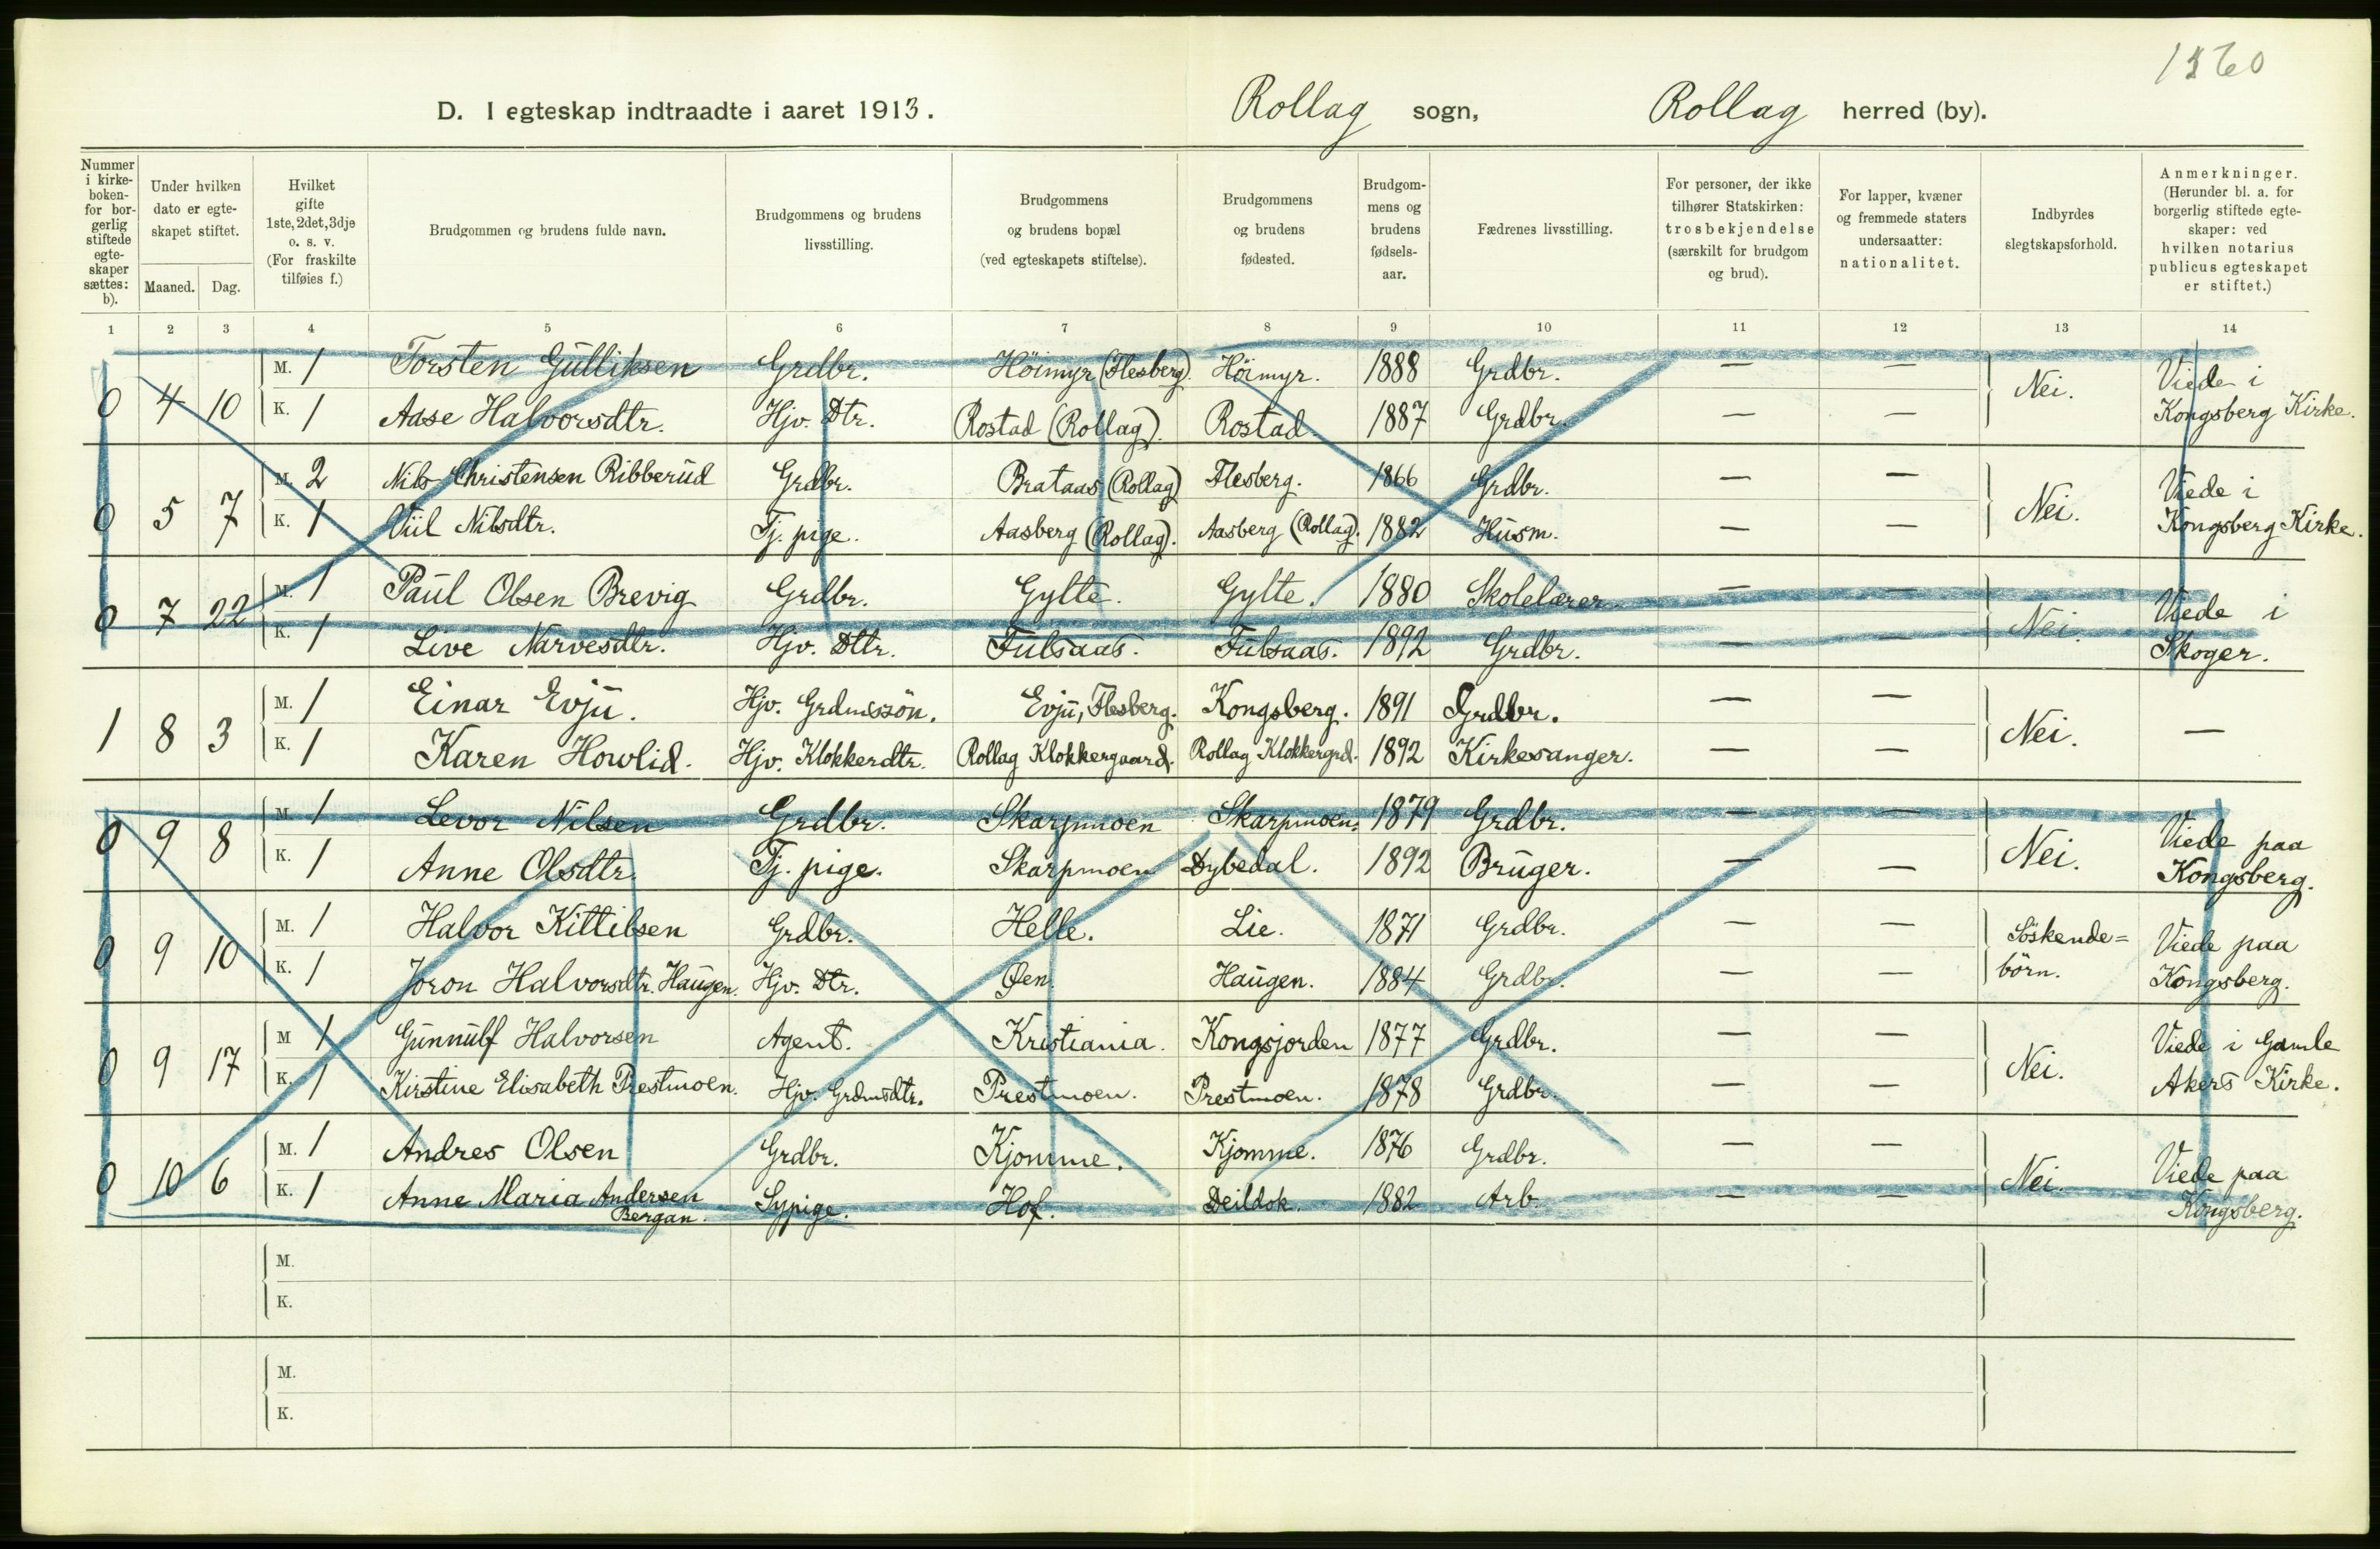 1360
D. I egteskap indtraadte i aaret 1913. Rollag sogn, Rollag herred (by).
Nummer i kirkeboken for borgerlig stiftede egteskaper sættes: b).
Under hvilken dato er egteskapet stiftet.
Maaned. Dag.
Hvilket gifte 1ste, 2det, 3dje o. s. v. (For fraskilte tilføies f.)
Brudgommen og brudens fulde navn.
Brudgommens og brudens livsstilling.
Brudgommens og brudens bopæl (ved egteskapets stiftelse).
Brudgommens og brudens fødested.
Brudgommens og brudens fødselsaar.
Fædrenes livsstilling.
For personer, der ikke tilhører Statskirken: trosbekjendelse (særskilt for brudgom og brud).
For lapper, kvæner og fremmede staters undersaatter: nationalitet.
Indbyrdes slegtskapsforhold.
Anmerkninger. (Herunder bl. a. for borgerlig stiftede egteskaper: ved hvilken notarius publicus egteskapet er stiftet.)
1 2 3 4 5 6 7 8 9 10 11 12 13 14
0 4 10 M. 1 Torsten Gulliksen Grdbr. Höimyr (Flesberg). Höimyr. 1888 Grdbr. — — Nei. Viede i
K. 1 Aase Halvorsdtr. Hjv. Dtr. Rostad (Rollag). Rostad. 1887 Grdbr. — — Kongsberg Kirke.
0 5 7 M. 2 Nils Christensen Ribberud Grdbr. Brataas (Rollag) Flesberg. 1866 Grdbr. — — Nei. Viede i
K. 1 Viil Nilsdtr. Tj. pige. Aasberg (Rollag). Aasberg (Rollag). 1882 Husm. — — Kongsberg Kirke.
0 7 22 M. 1 Paul Olsen Brevig Grdbr. Gylte. Gylte. 1880 Skolelærer — — Nei. Viede i
K. 1 Live Narvesdtr. Hjv. Dttr. Fulsaas. Fulsaas. 1892 Grdbr. — — Skoger.
1 8 3 M. 1 Einar Evju. Hjv. Grdmssön. Evju, Flesberg. Kongsberg. 1891 Grdbr. — — Nei. —
K. 1 Karen Howlid. Hjv. Klokkerdtr. Rollag Klokkergaard. Rollag Klokkergrd. 1892 Kirkesanger. — —
0 9 8 M. 1 Levor Nilsen Grdbr. Skarpmoen Skarpmoen. 1879 Grdbr. — — Nei. Viede paa
K. 1 Anne Olsdtr. Tj. pige. Skarpmoen Dybedal. 1892 Bruger. — — Kongsberg.
0 9 10 M. 1 Halvor Kittilsen Grdbr. Helle. Lie. 1871 Grdbr. — — Söskende= Viede paa
K. 1 Joron Halvorsdtr. Haugen. Hjv. Dtr. Øen. Haugen. 1884 Grdbr. — — börn. Kongsberg.
0 9 17 M 1 Gunnulf Halvorsen Agent. Kristiania. Kongsjorden 1877 Grdbr. — — Nei. Viede i Gamle
K. 1 Kirstine Elisabeth Prestmoen. Hjv. Grdmsdtr. Prestmoen. Prestmoen. 1878 Grdbr. — — Akers Kirke.
0 10 6 M. 1 Andres Olsen Grdbr. Kjomme. Kjomme. 1876 Grdbr. — — Nei. Viede paa
K. 1 Anne Maria Andersen Bergan. Sypige. Hof. Deildok. 1882 Arb. — — Kongsberg.
M.
K.
M.
K.